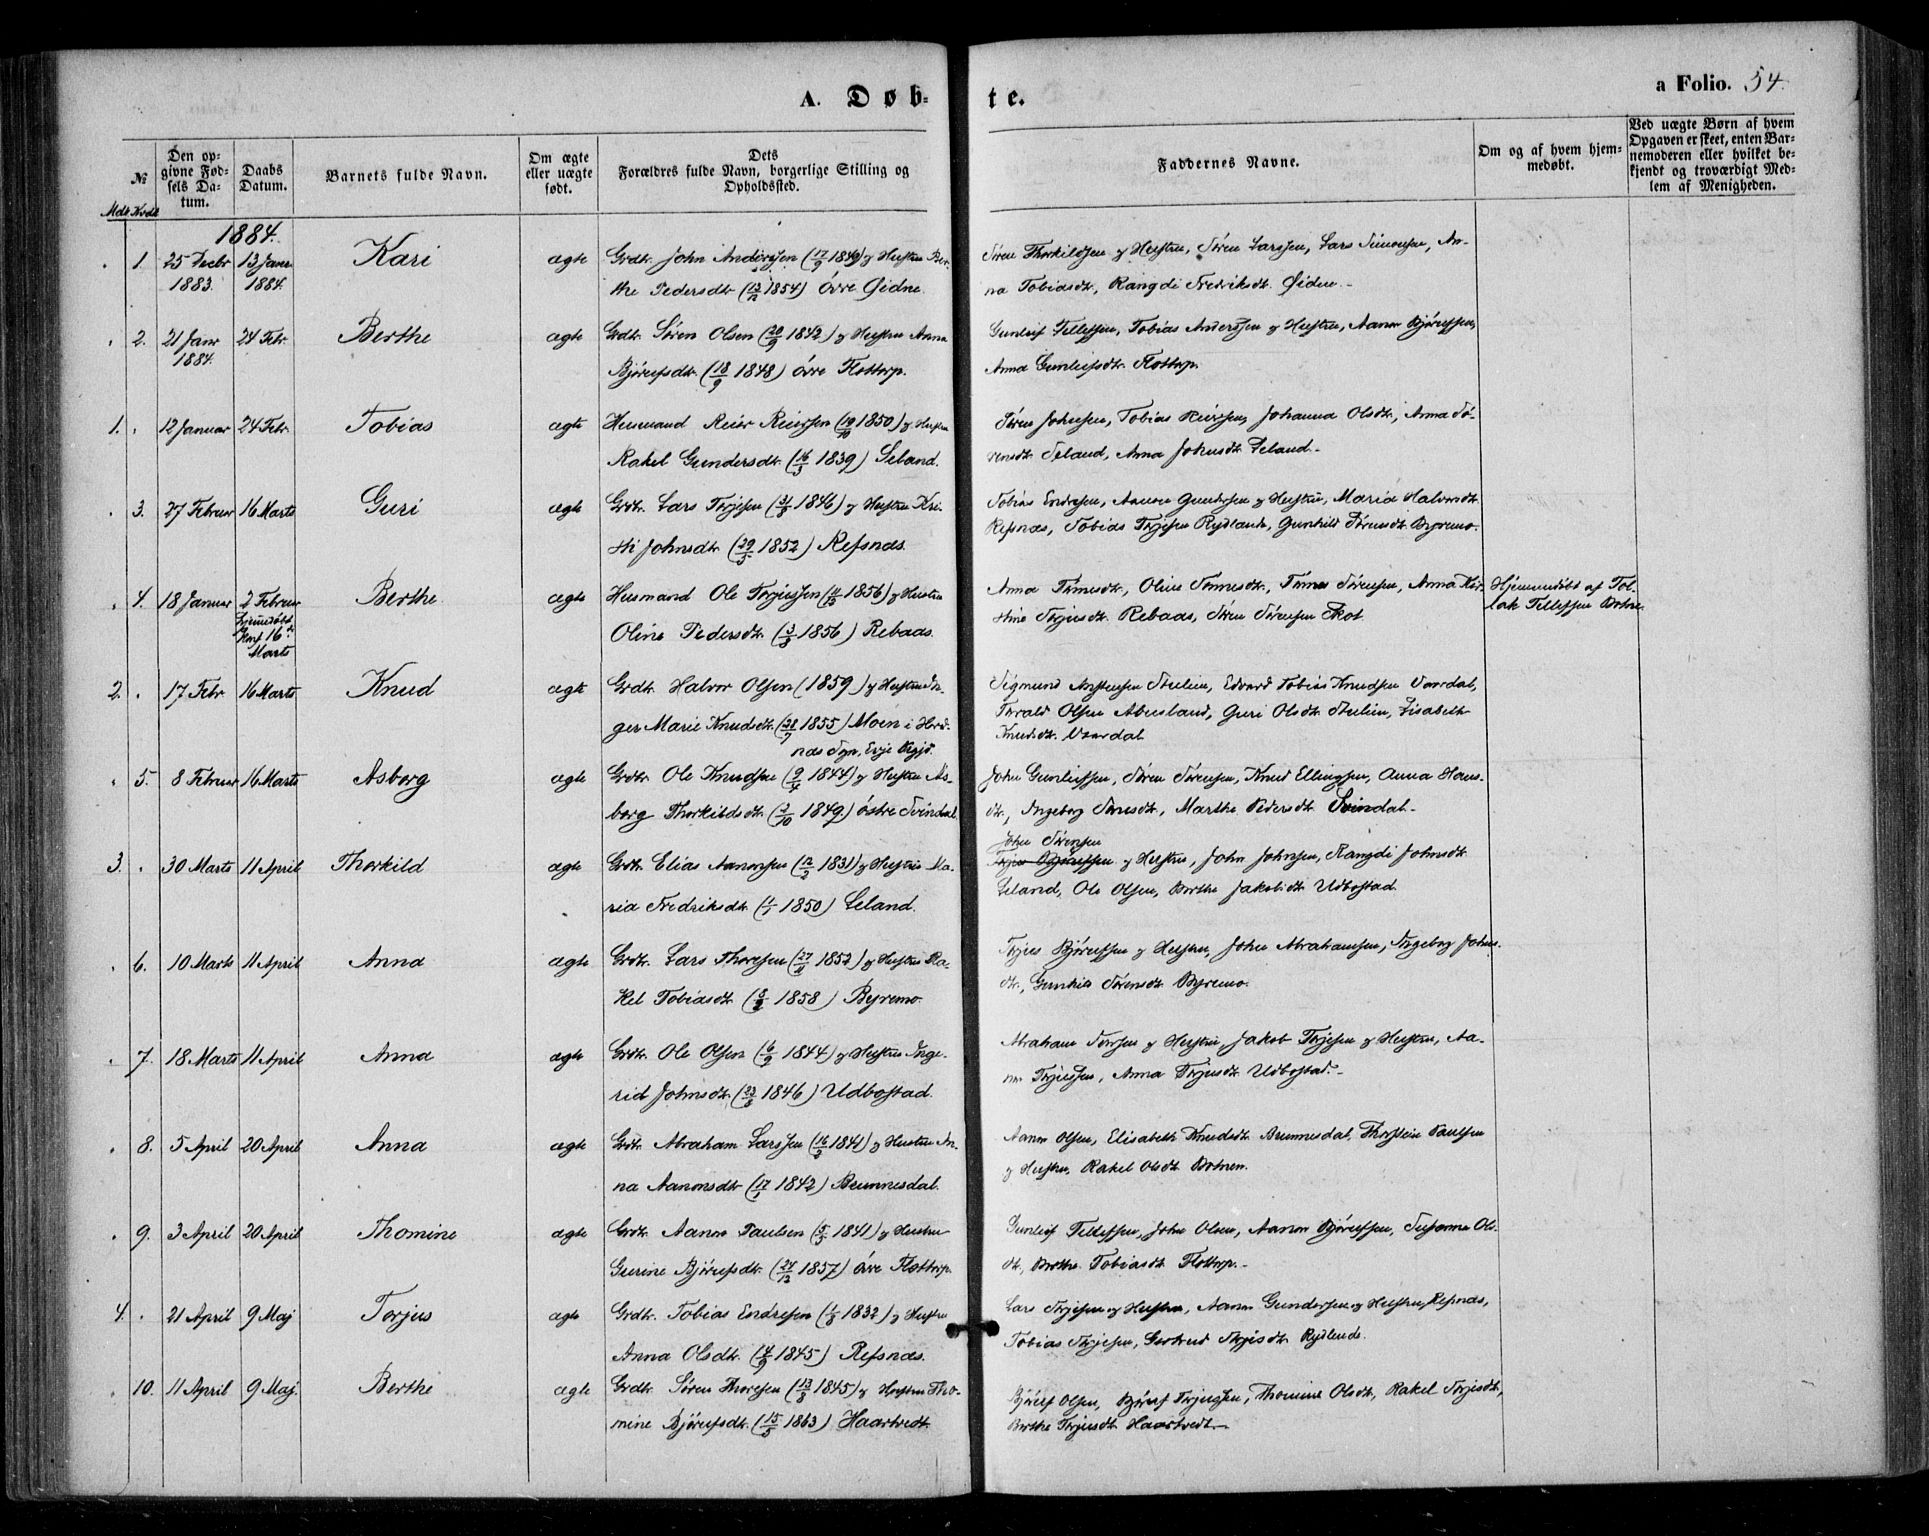 A. Døb-
te.
a Folio. 54.
№
Mdk Kvdk
Den op-
givne Fød-
sels Da-
tum.
Daabs
Datum.
Barnets fulde Navn.
Om ægte
eller uægte
født.
Dets
Forældres fulde Navn, borgerlige Stilling og
Opholdssted.
Faddernes Navne.
Om og af hvem hjem-
medøbt.
Ved uægte Børn af hvem
Opgaven er skeet, enten Bar-
nemoderen eller hvilket be-
kjendt og troværdigt Med-
lem af Menigheden.
1884.
1. 25 Decbr 13 Janr Kari ægte Grdtr. John Anderssen (17/9 1846) og Hustru Ber-
1883. 1884. the Pedersdtr. (13/12 1854) Övre Øidne.
Sören Thorkildsen og Hustru, Sören Larssen, Lars Simonsen, An-
na Tobiasdtr., Rangdi Fredriksdtr. Øidne.
2. 21 Janr 24 Febr Berthe ægte Grdtr. Sören Olsen (20/9 1842) og Hustru Anna
1884. Björufsdtr. (18/9 1848) övre Flottorp.
Gunleif Tellefsen, Tobias Anderssen og Hustru, Aanon Björufsen,
Anna Gunleifsdtr. Flottorp.
1. 12 Januar 24 Febr. Tobias ægte Husmand Reier Reierssen (19/10 1850) og Hustru
Rakel Gundersdtr. (16/3 1839) Seland.
Sören Johnsen, Tobias Reierssen, Johanna Olsdtr., Anna Sö-
rensdtr. Seland, Anna Johnsdtr. Seland.
3. 27 Februar 16 Marts Guri ægte Grdtr. Lars Torjesen (31/8 1846) og Hustru Kri-
sti Johnsdtr. (29/5 1852) Refsnæs.
Tobias Endresen, Aanon Gundersen og Hustru, Maria Halvorsdtr.
Refsnæs, Tobias Torjesen Rydland, Gunhild Sörensdtr. Byremo.
4. 18 Januar 2 Februar Berthe ægte Husmand Ole Torjussen 1856) og Hustru
hjemmedöbt
16de
Marts
Oline Pedersdtr. (3/8 1856) Rebaas.
Anna Tönnesdtr., Oline Tönnesdtr., Tönnes Sörensen, Anna Kir-
stine Torjusdtr. Rebaas, Sören Sörensen Skot.
Hjemmedöbt af Tol-
lak Tellefsen Botne.
2. 17 Febr 16 Marts Knud ægte Grdtr. Halvor Olsen (1859) og Hustru In-
ger Marie Knudsdtr. (28/7 1855) Moen i Hord-
næs Sogn, Evje Prgjd.
Sigmund, Edvard Tobias Knudsen Vaardal,
Torald Olsen Abusland, Guri Olsdtr., Lisabeth
Knudsdtr. Vaardal
5. 8 Februar 16 Marts Asborg ægte Grdtr. Ole Knudsen (9/4 1844) og Hustru As-
borg Thorkildsdtr. (2/10 1849) östre Svindal.
John Gunleifssen, Sören Sörensen, Knud Ellingsen, Anna Hans-
dtr., Ingeborg Tönnesdtr., Marthe Pedersdtr. Svindal.
3. 30 Marts 11 April Thorkild ægte Grdtr. Elias Aanonsen (12/2 1831) og Hustru Ma-
ria Fredriksdtr. (1/7 1850) Seland.
John Sörensen
Torjus Björufsen og Hustru, John Johnsen, Rangdi Johnsdtr.
Seland, Ole Olsen, Berthe Jakobsdtr. Udbostad.
6. 10 Marts 11 April Anna ægte Grdtr. Lars Thoresen (27/11 1852) og Hustru Ra-
kel Tobiasdtr. (8/2 1858) Byremo.
Torjus Björufsen og Hustru, John Abrahamsen, Ingeborg Johns-
dtr., Gunhild Sörensdtr. Byremo.
7. 18 Marts 11 April Anna ægte Grdtr. Ole Olsen (6/9 1844) og Hustru Inge-
rid Johnsdtr. (23/5 1846) Udbostad.
Abraham og Hustru, Jakob Torjesen og Hustru, Aa-
non Torjussen, Anna Torjusdtr. Udbostad.
8. 5 April 20 April Anna ægte Grdtr. Abraham Larssen (16/2 1841) og Hustru An-
na Aanonsdtr. (17/1 1842) Brunnesdal.
Aanon Olsen, Elisabeth Knudsdtr. Brunnesdal, Thorstein Paulsen
og Hustru, Rakel Olsdtr. Botnen.
9. 3 April 20 April Thomine ægte Grdtr. Aanon Paulsen (5/3 1841) og Hustru
Gurine Björufsdtr. (24/12 1857) övre Flottorp.
Gunleif Tellefsen, John Olsen, Aanon Björufsen, Susanne Ols-
dtr., Berthe Tobiasdtr. Flottorp.
4. 21 April 9 Maj Torjus ægte Grdtr. Tobias Endresen (1/8 1832) og Hustru
Anna Olsdtr. (4/9 1845) Refsnæs.
Lars Torjesen og Hustru, Aanon Gundersen og Hustru, Refsnæs,
Tobias Torjesen, Gertrud Torjesdtr. Rydland.
10. 11 April 9 Maj. Berthe ægte Grdtr. Sören Thoresen (13/3 1845) og Hustru Tho-
mine Björufsdtr. (15/5 1863) Haartvedt.
Björuf Olsen, Björuf Torjussen, Thomine Olsdtr., Rakel Torjusdtr.,
Berthe Torjusdtr. Haartvedt.